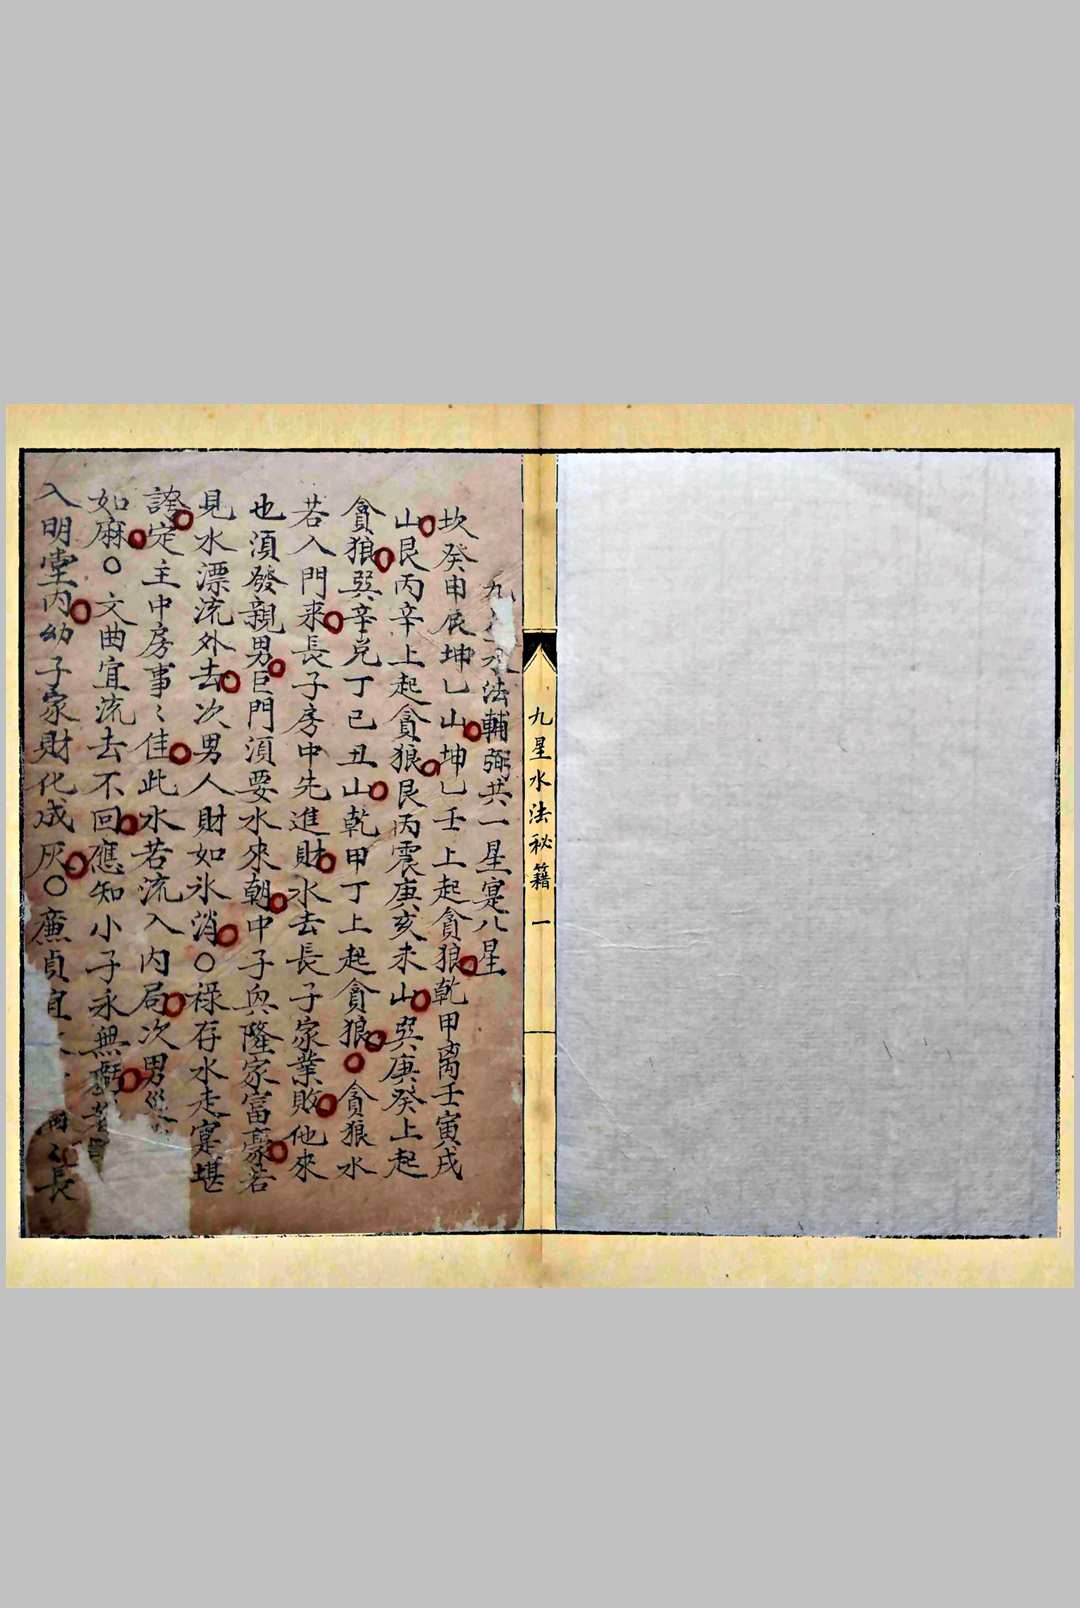 九星水法秘籍 一
九 水法輔弼共一星寔八星
坎癸申辰坤乙山坤乙壬上起貪狼乾甲离壬寅戌
山艮丙辛上起貪狼艮丙震庚亥未山巽庚癸上起
貪狼巽辛兑丁己丑山乾甲丁上起貪狼○貪狼水
若入門来長子房中先進財水去長子家業敗他來
也須發親男巨門須要水來朝中子興隆家富豪若
見水漂流外去次男人財如氷消○祿存水走寔堪
誇定主中房事〻佳此水若流入内局次男
如麻○文曲宜流去不回應知小子永無
入明堂内幼子家財化成灰○廉貞宜 長